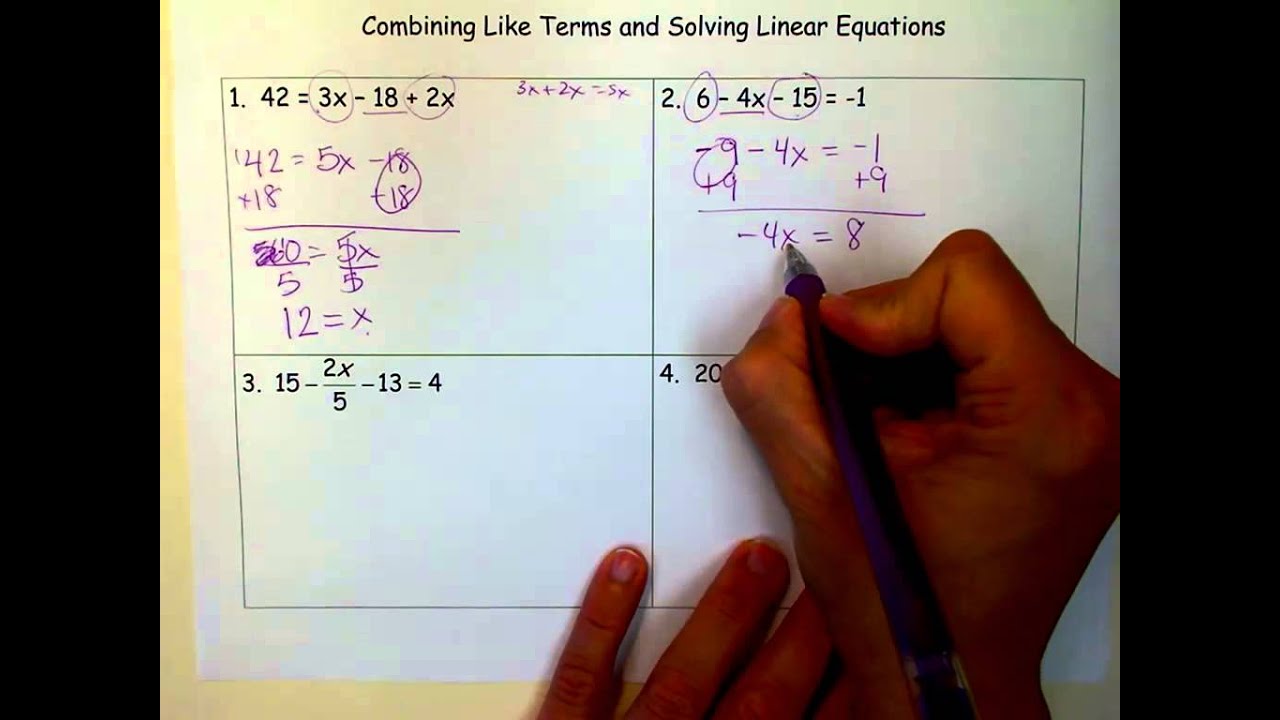 Combining Like Terms and Solving Linear Equations
1. 42 = 3x - 18 + 2x
3x + 2x = 5x
42 = 5x - 18
+18 +18
60 = 5x
5 5
12 = x
2. 6 - 4x - 15 = -1
-9 - 4x = -1
+9 +9
-4x = 8
3. 15 - 2x/5 - 13 = 4
4. 20